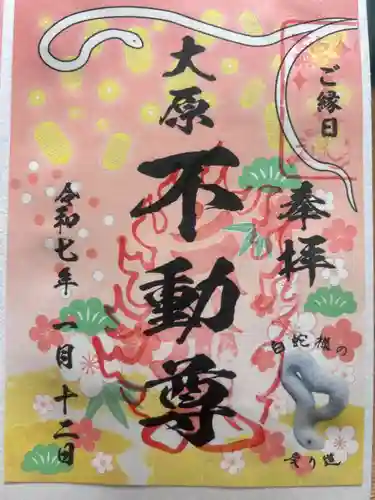 ご縁日
奉拝
大原
不動尊
令和七年 一月十二日
白蛇様の
乗り道